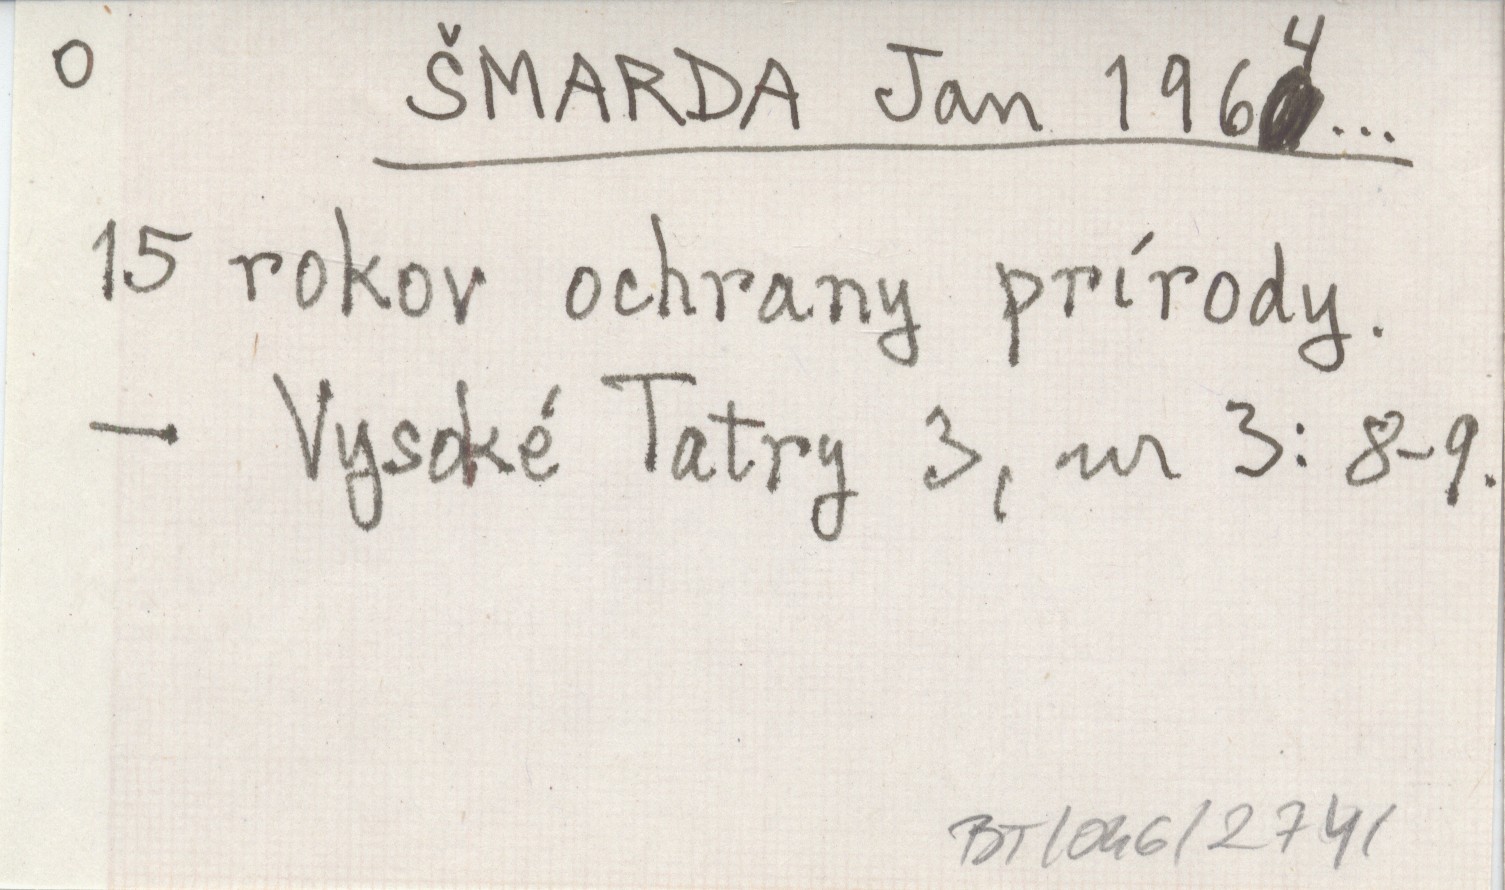 O
ŠMARDA Jan 1964...
15 rokov ochrany prírody.
— Vysoké Tatry 3, nr 3: 8-9.
BT/046/2741